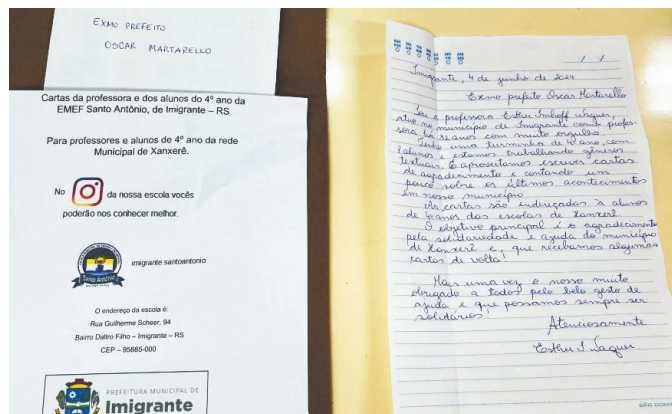 EXMO PREFEITO
OSCAR MARTARELLO
Cartas da professora e dos alunos do 4º ano da
EMEF Santo Antônio, de Imigrante – RS
Para professores e alunos de 4º ano da rede
Municipal de Xanxerê.
No da nossa escola vocês
poderão nos conhecer melhor.
Santo Antônio
imigrante santoantonio
O endereço da escola é:
Rua Guilherme Scheer, 94
Bairro Daltro Filho – Imigrante – RS
CEP – 95885-000
PREFEITURA MUNICIPAL DE
Imigrante
/ /
Imigrante, 4 de junho de 2024
Exmo prefeito Oscar Martarello
Sou a professora Esther Imhoff Jaquer,
atuo no município de Imigrante como profes-
sora há 32 anos com muito orgulho.
Tenho uma turminha de 4º ano, com
alunos e estamos trabalhando gêneros
textuais. E aproveitamos escrever cartas
de agradecimento e contando um
pouco sobre os últimos acontecimentos
em nosso município.
As cartas são endereçadas à alunos
de 4º anos das escolas de Xanxerê.
O objetivo principal é o agradecimento
pela solidariedade e ajuda do município
de Xanxerê e, que recebamos algumas
cartas de volta!
Mais uma vez o nosso muito
obrigado a todos pelo belo gesto de
ajuda e que possamos sempre ser
solidários!
Atenciosamente
Esther I. Jaquer